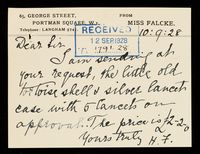 65, GEORGE STREET,
PORTMAN SQUARE, W.1.
Telephone: LANGHAM
FROM
MISS FALCKE.
10.9.28
RECEIVED
12 SEP 1928
Dear Sir.
I am sending at
your request, the little old
tortoise shell & silver lancet
case with 6 lancets on
approval. The price is £2-2-0
Yours truly
H. F.